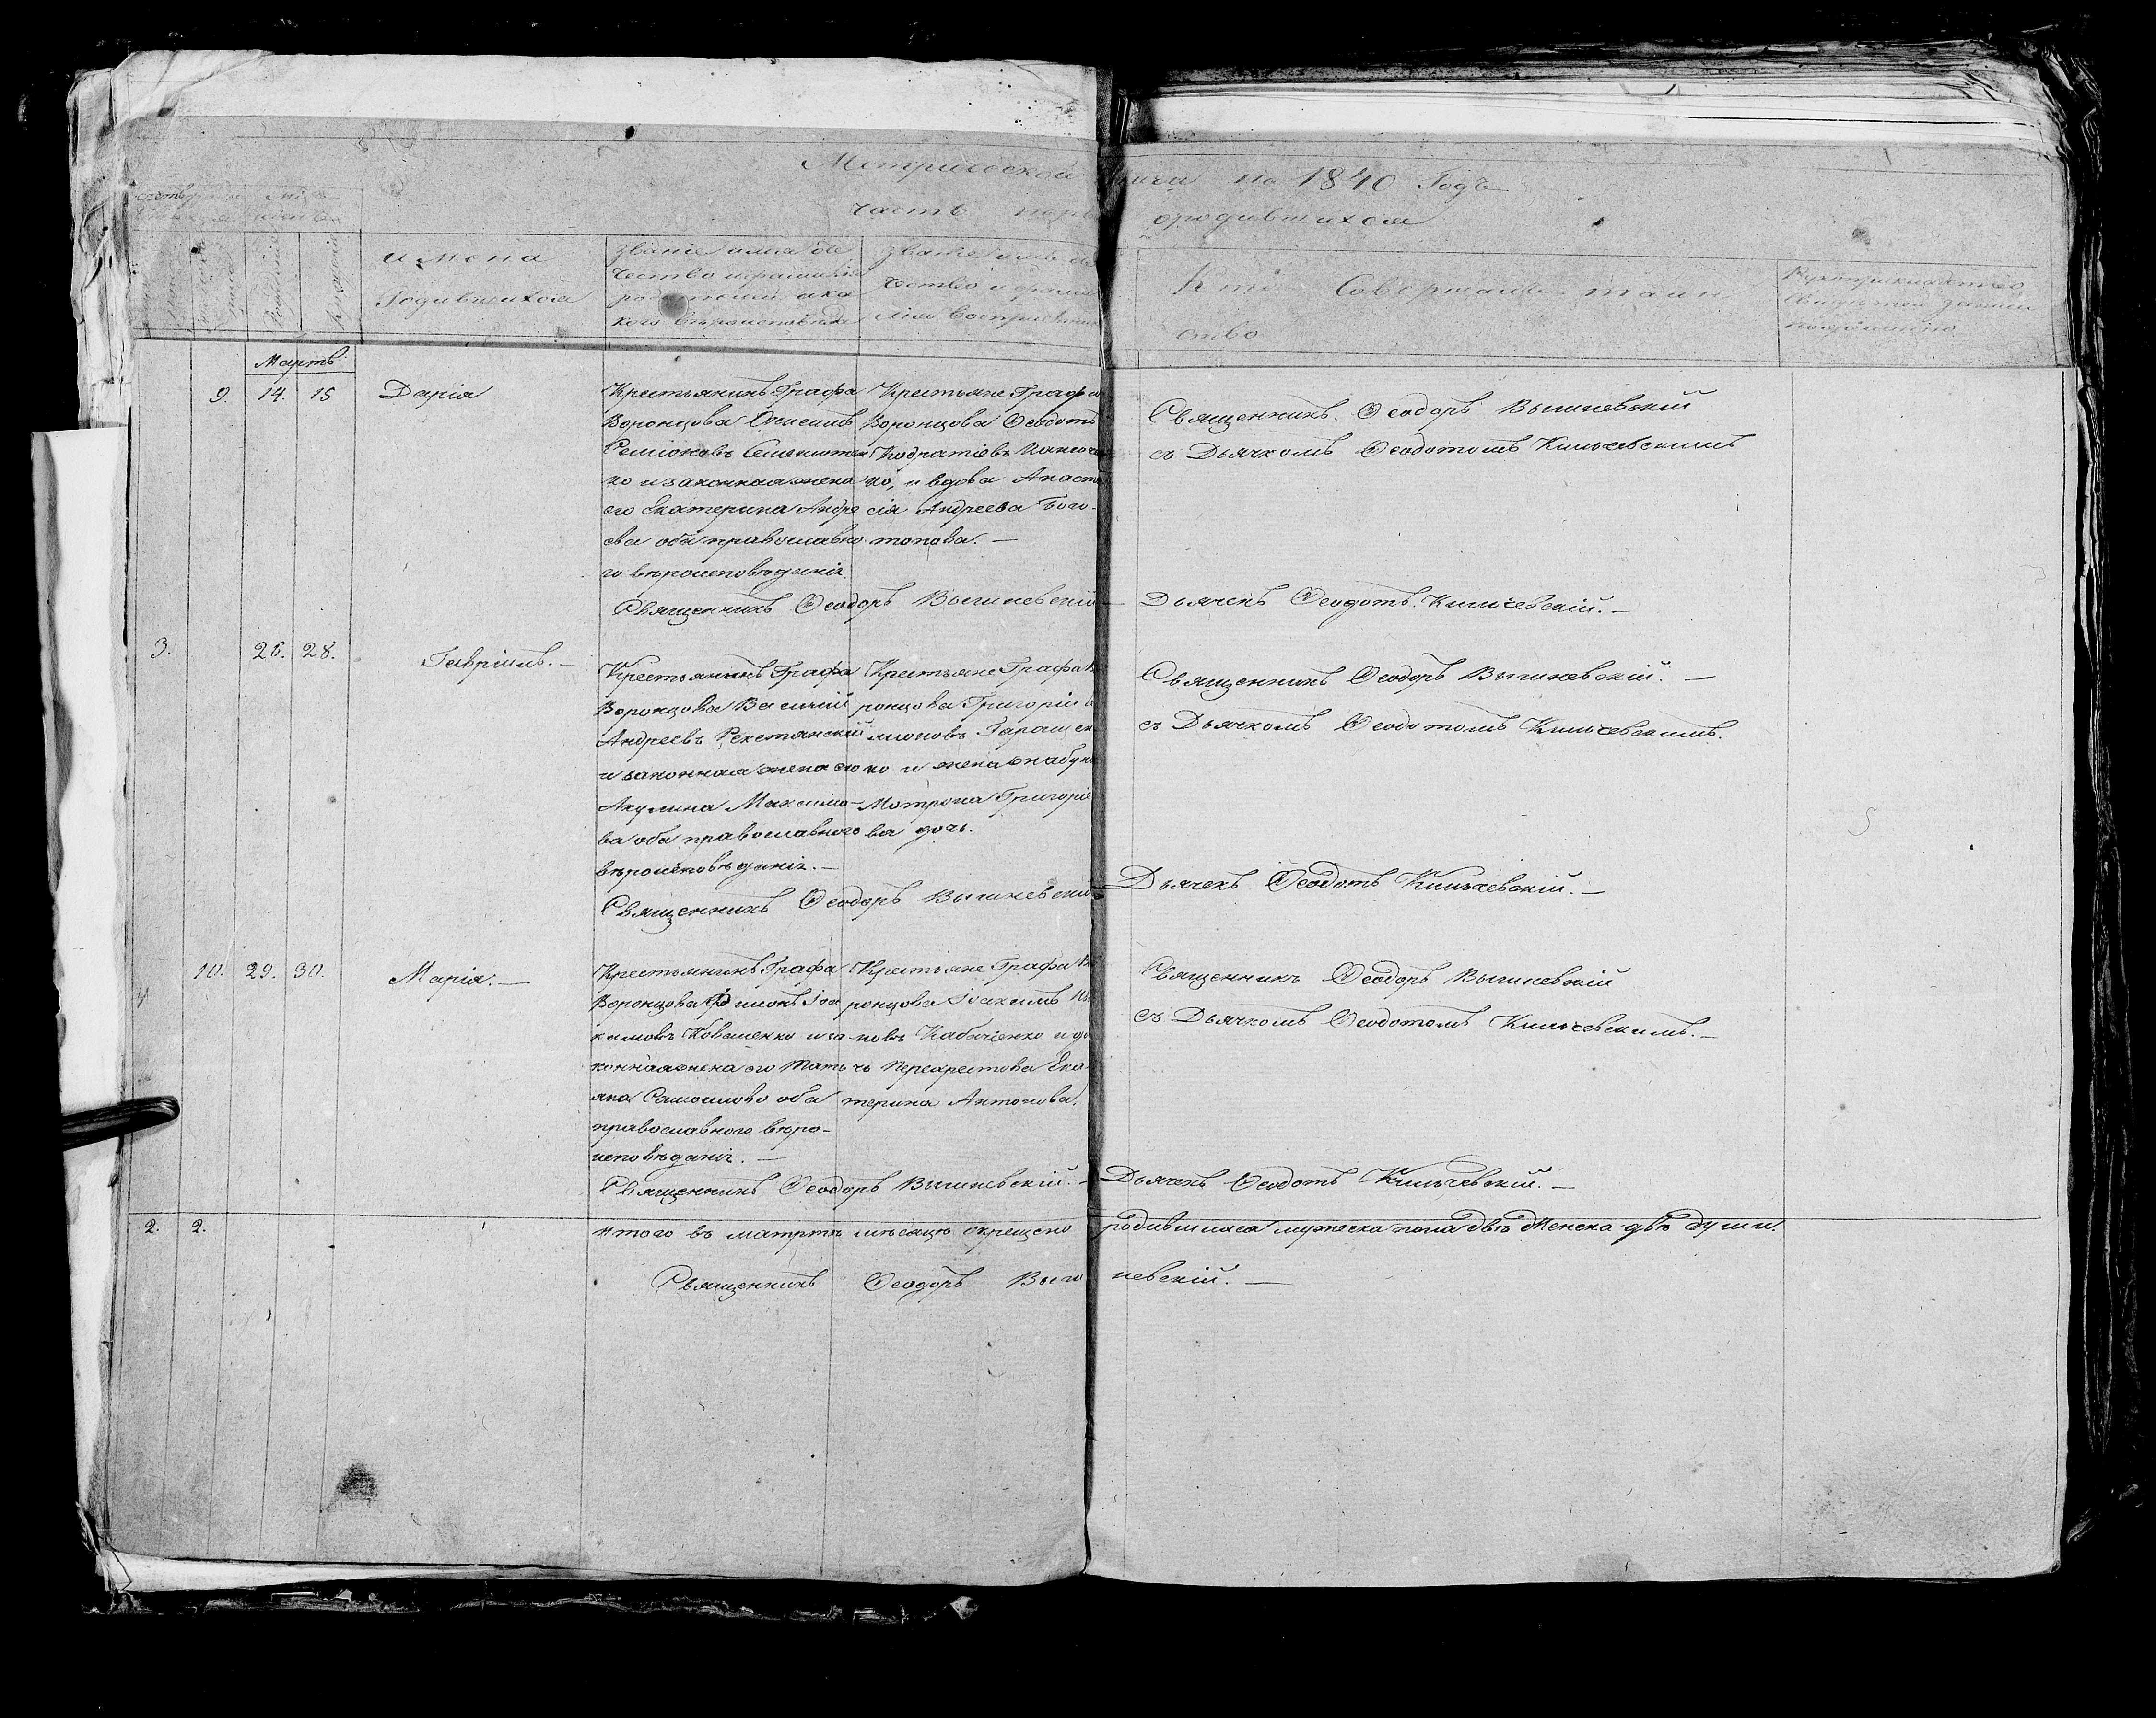 Метрической книги на 1840 Годъ
часть перва ородившихся
имена
Родившихся
Званіе имя оте
чество ифамилія
родителей ика
кого вѣроисповѣда
Званіе имя оте
чество и фами
лія Воспріемни
Кто Совершалъ таин
ство
Рукоприкладство
Свидетелей записи
пожеланію
Мартъ
9. 14. 15 Дарія
Крестьянинъ Графа
Воронцова
Семіоновъ
ко изаконная жена
его Екатерина Андре
ева оба православно
го вѣроисповѣданія
Крестьяне Графа
Воронцова Ѳеодотъ
Кодратіевъ
ко, и вдова Анаста
сія Андреева Бого-
това. —
Священникъ Ѳеодоръ Выгиневскій
съ Дьячкомъ Ѳеодотомъ Кильчевскимъ
Священникъ Ѳеодоръ Выгиневскій — Дьячекъ Ѳеодотъ Кильчевскій. —
3. 26. 28. Гавріилъ. —
Крестьянинъ Графа
Воронцова Василій
Андреевъ
и законная жена его
Акулина Максимо-
ва оба православного
вѣроисповѣданія. —
Крестьяне Графа Во
ронцова Григорій
Гаращен
ко и жена
Мотрона Григоріе
ва дочь.
Священникъ Ѳеодоръ Выгиневскій. —
съ Дьячкомъ Ѳеодотомъ Кильчевскимъ.
Священникъ Ѳеодоръ Выгиневскій Дьячекъ Ѳеодотъ Кильчевскій. —
10. 29. 30. Марія. —
Крестьянинъ Графа
Воронцова Филонъ Іоа
кимовъ Коваленко иза
конная жена его Тать
яна Самоилова оба
православного вѣро-
исповѣданія. —
Крестьяне Графа Во
ронцова Іоакимъ Ив
новъ и до
чь Перехрестова Ека
терина Антонова.
Священникъ Ѳеодоръ Выгиневскій
съ Дьячкомъ Ѳеодотомъ Кильчевскимъ. —
Священникъ Ѳеодоръ Выгиневскій. — Дьячекъ Ѳеодотъ Кильчевскій. —
2. 2. итого въ матртѣ мѣсяцѣ окрещено родившихся мужеска пола двѣ Женска двѣ души.
Священникъ Ѳеодоръ Выги невскій. —